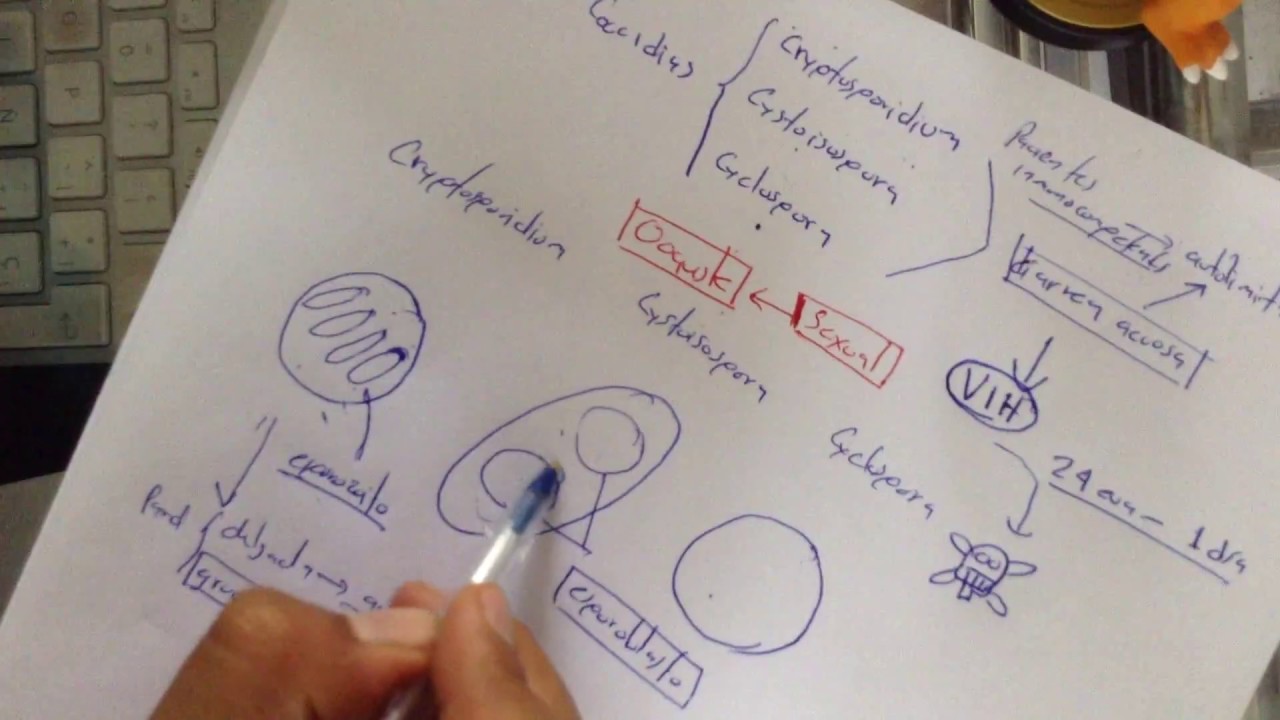 Coccidias
Cryptosporidium
Cystoisospora
Cyclospora
Pacientes
inmunocompetentes → autolimit
diarrea acuosa
VIH
24 eva - 1 día
Cryptosporidium
Ooquiste ← Sexual
Cystoisospora
Cyclospora
esporozoito
Pared
delgada →
esporoblasto